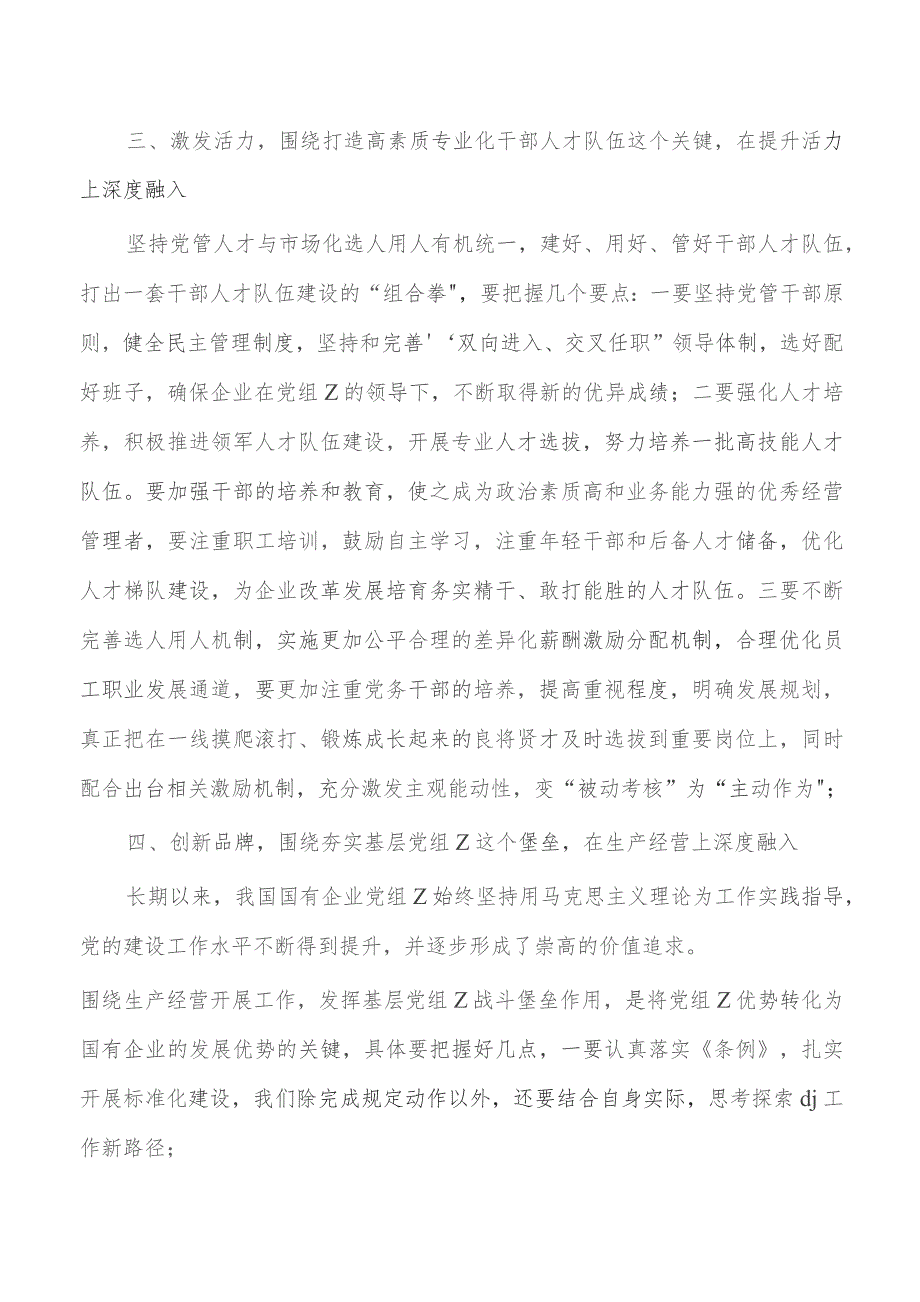 三、激发活力，围绕打造高素质专业化干部人才队伍这个关键，在提升活力
上深度融入
坚持党管人才与市场化选人用人有机统一，建好、用好、管好干部人才队伍，
打出一套干部人才队伍建设的“组合拳"，要把握几个要点：一要坚持党管干部原
则，健全民主管理制度，坚持和完善'‘双向进入、交叉任职”领导体制，选好配
好班子，确保企业在党组Z的领导下，不断取得新的优异成绩；二要强化人才培
养，积极推进领军人才队伍建设，开展专业人才选拔，努力培养一批高技能人才
队伍。要加强干部的培养和教育，使之成为政治素质高和业务能力强的优秀经营
管理者，要注重职工培训，鼓励自主学习，注重年轻干部和后备人才储备，优化
人才梯队建设，为企业改革发展培育务实精干、敢打能胜的人才队伍。三要不断
完善选人用人机制，实施更加公平合理的差异化薪酬激励分配机制，合理优化员
工职业发展通道，要更加注重党务干部的培养，提高重视程度，明确发展规划，
真正把在一线摸爬滚打、锻炼成长起来的良将贤才及时选拔到重要岗位上，同时
配合出台相关激励机制，充分激发主观能动性，变“被动考核”为“主动作为"；
四、创新品牌，围绕夯实基层党组Z这个堡垒，在生产经营上深度融入
长期以来，我国国有企业党组Z始终坚持用马克思主义理论为工作实践指导，
党的建设工作水平不断得到提升，并逐步形成了崇高的价值追求。
围绕生产经营开展工作，发挥基层党组Z战斗堡垒作用，是将党组Z优势转化为
国有企业的发展优势的关键，具体要把握好几点，一要认真落实《条例》，扎实
开展标准化建设，我们除完成规定动作以外，还要结合自身实际，思考探索dj工
作新路径；